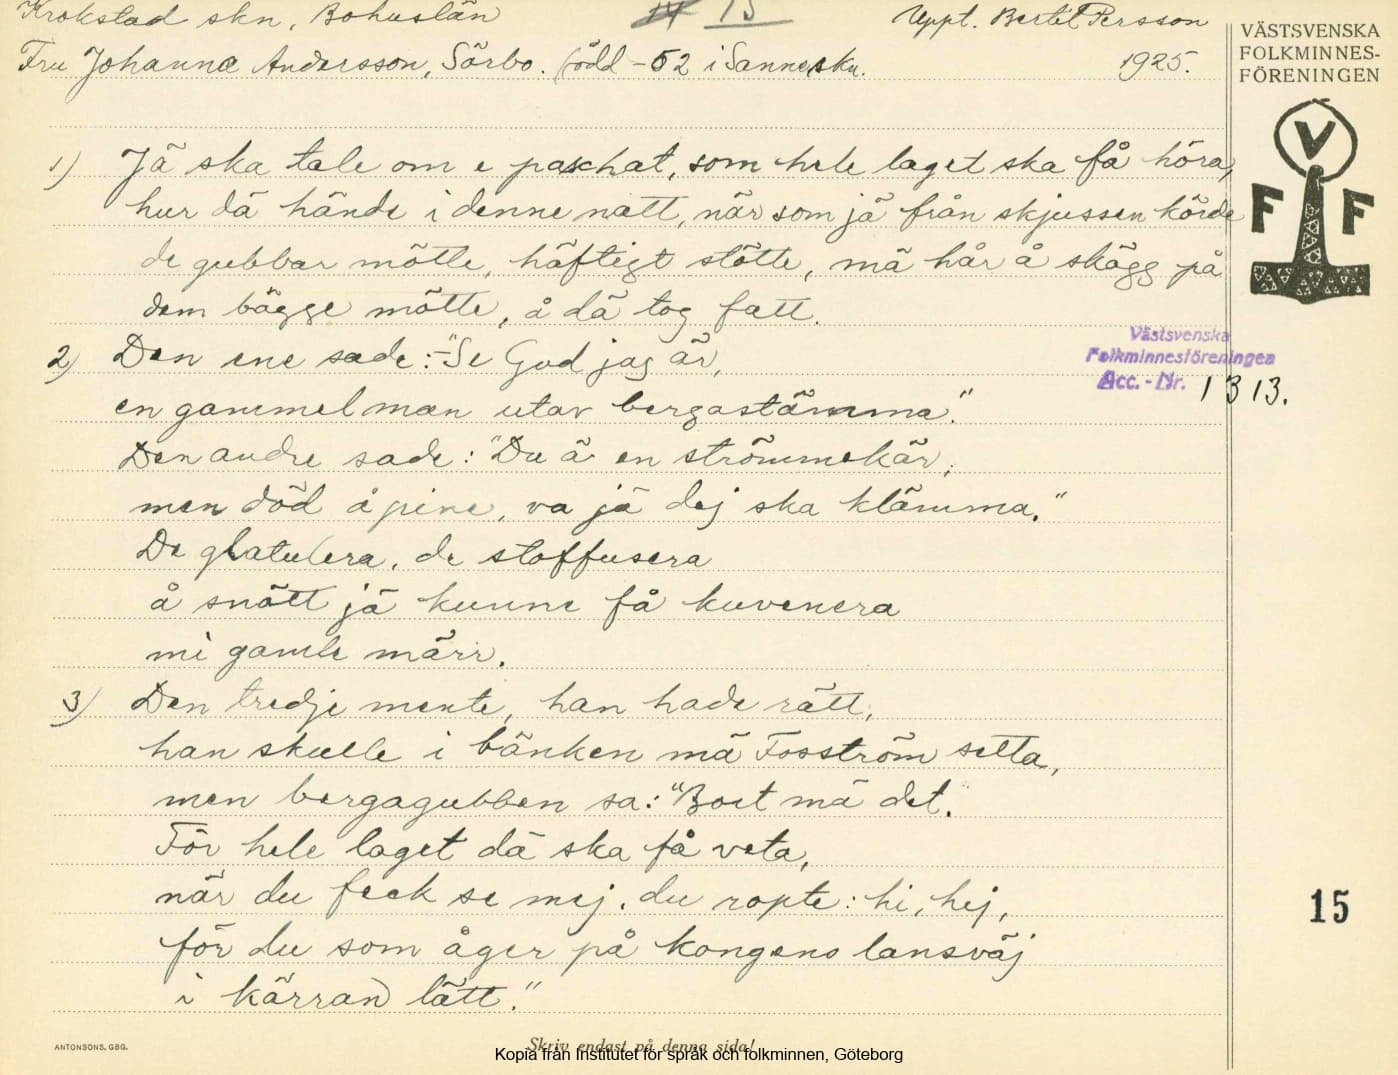 Krokstad skn, Bohuslän
15
Uppt. Bertil Persson
Fru Johanna Andersson, Sörbo. född -52 i Sanne skn.
1925.
VÄSTSVENSKA
FOLKMINNES-
FÖRENINGEN
V
F F
1) Jä ska tale om e paschat, som hele laget ska få höra,
hur dä hände i denne natt, när som jä från skjussen körde
de gubbar mötte, häftigt stötte, mä hår å skägg på
dem bägge mötte, å dä tog fatt.
2) Den ene sade: "Se God jag är,
en gammel man utav bergastämma."
Den andre sade: "Du ä en strömmekär,
men död å pine, va jä dej ska klämma."
De glatulera, de stoffusera
å snått jä kunne få kuvenera
mi gamle märr.
3) Den tredje mente, han hade rätt,
han skulle i bänken mä Fosström setta,
men bergagubben sa: "Bort mä det."
För hele laget dä ska få veta,
när du feck se mej, du ropte: hi, hej,
för du som åger på kongens lansväj
i kärran lätt."
Västsvenska
Folkminnesföreningen
Acc.-Nr. 1313.
15
ANTONSONS, GBG.
Skriv endast på denna sida!
Kopia från Institutet för språk och folkminnen, Göteborg